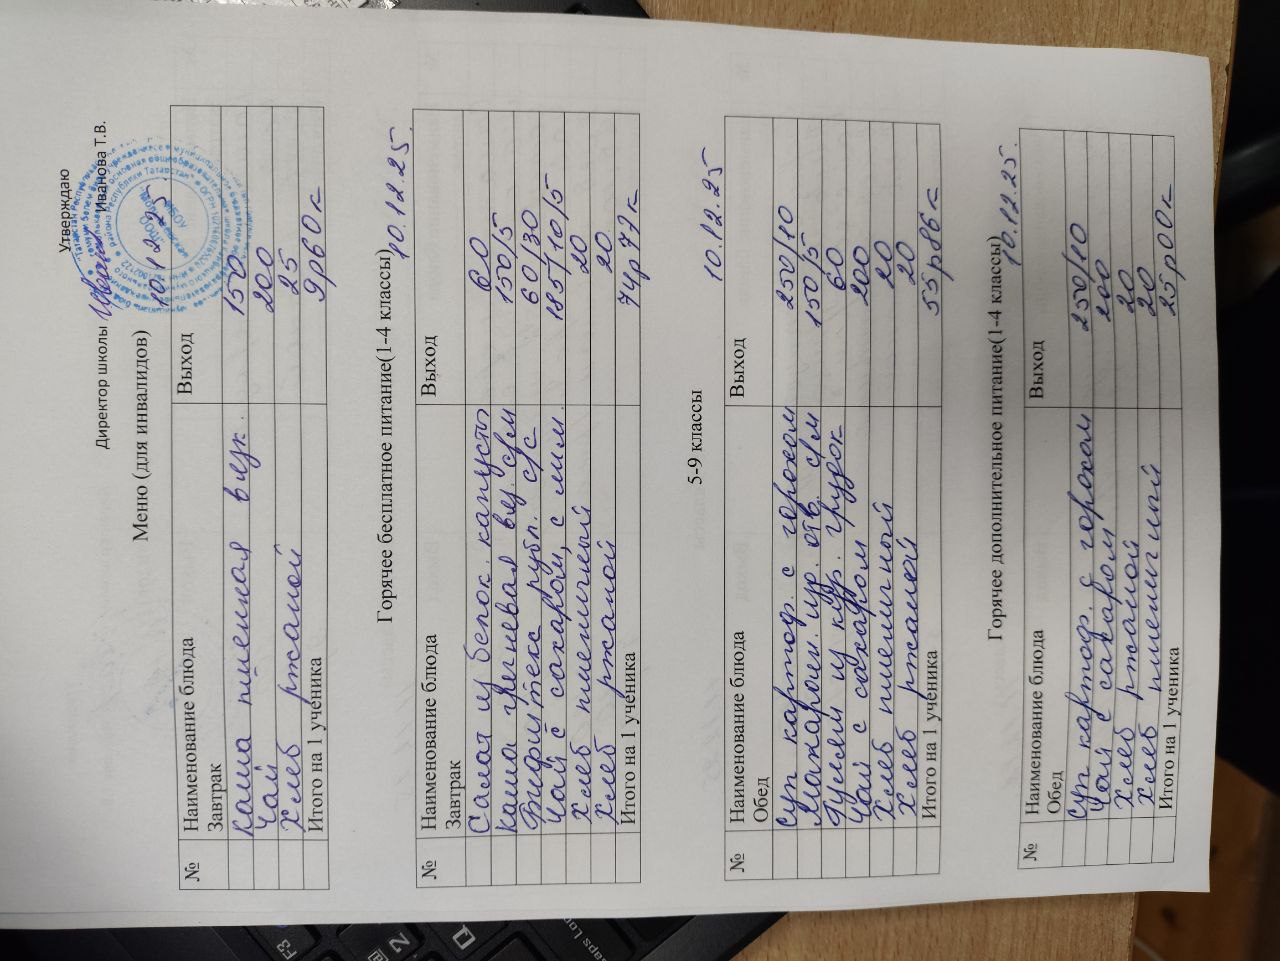 Утверждаю
Директор школы Иванова Т.В.
10.12.25.
Меню (для инвалидов)
№ Наименование блюда Выход
Завтрак
Каша пшенная вязк. 150
Чай 200
Хлеб ржаной 25
Итого на 1 ученика 9р60к
Горячее бесплатное питание(1-4 классы) 10.12.25.
№ Наименование блюда Выход
Завтрак
Салат из белок. капусты 60
Каша гречневая вяз. с/м 150/5
Бифштекс рубл. с/с 60/30
Чай с сахаром, с лим. 185/10/5
Хлеб пшеничный 20
Хлеб ржаной 20
Итого на 1 ученика 74р77к
5-9 классы 10.12.25
№ Наименование блюда Выход
Обед
Суп картоф. с горохом 250/10
Макарон. изд. отв. с/м 150/5
Гуляш из кур. грудок 60
Чай с сахаром 200
Хлеб пшеничный 20
Хлеб ржаной 20
Итого на 1 ученика 55р86к
Горячее дополнительное питание(1-4 классы) 10.12.25.
№ Наименование блюда Выход
Обед
Суп картоф. с горохом 250/10
Чай с сахаром 200
Хлеб ржаной 20
Хлеб пшеничный 20
Итого на 1 ученика 25р00к
F3
2